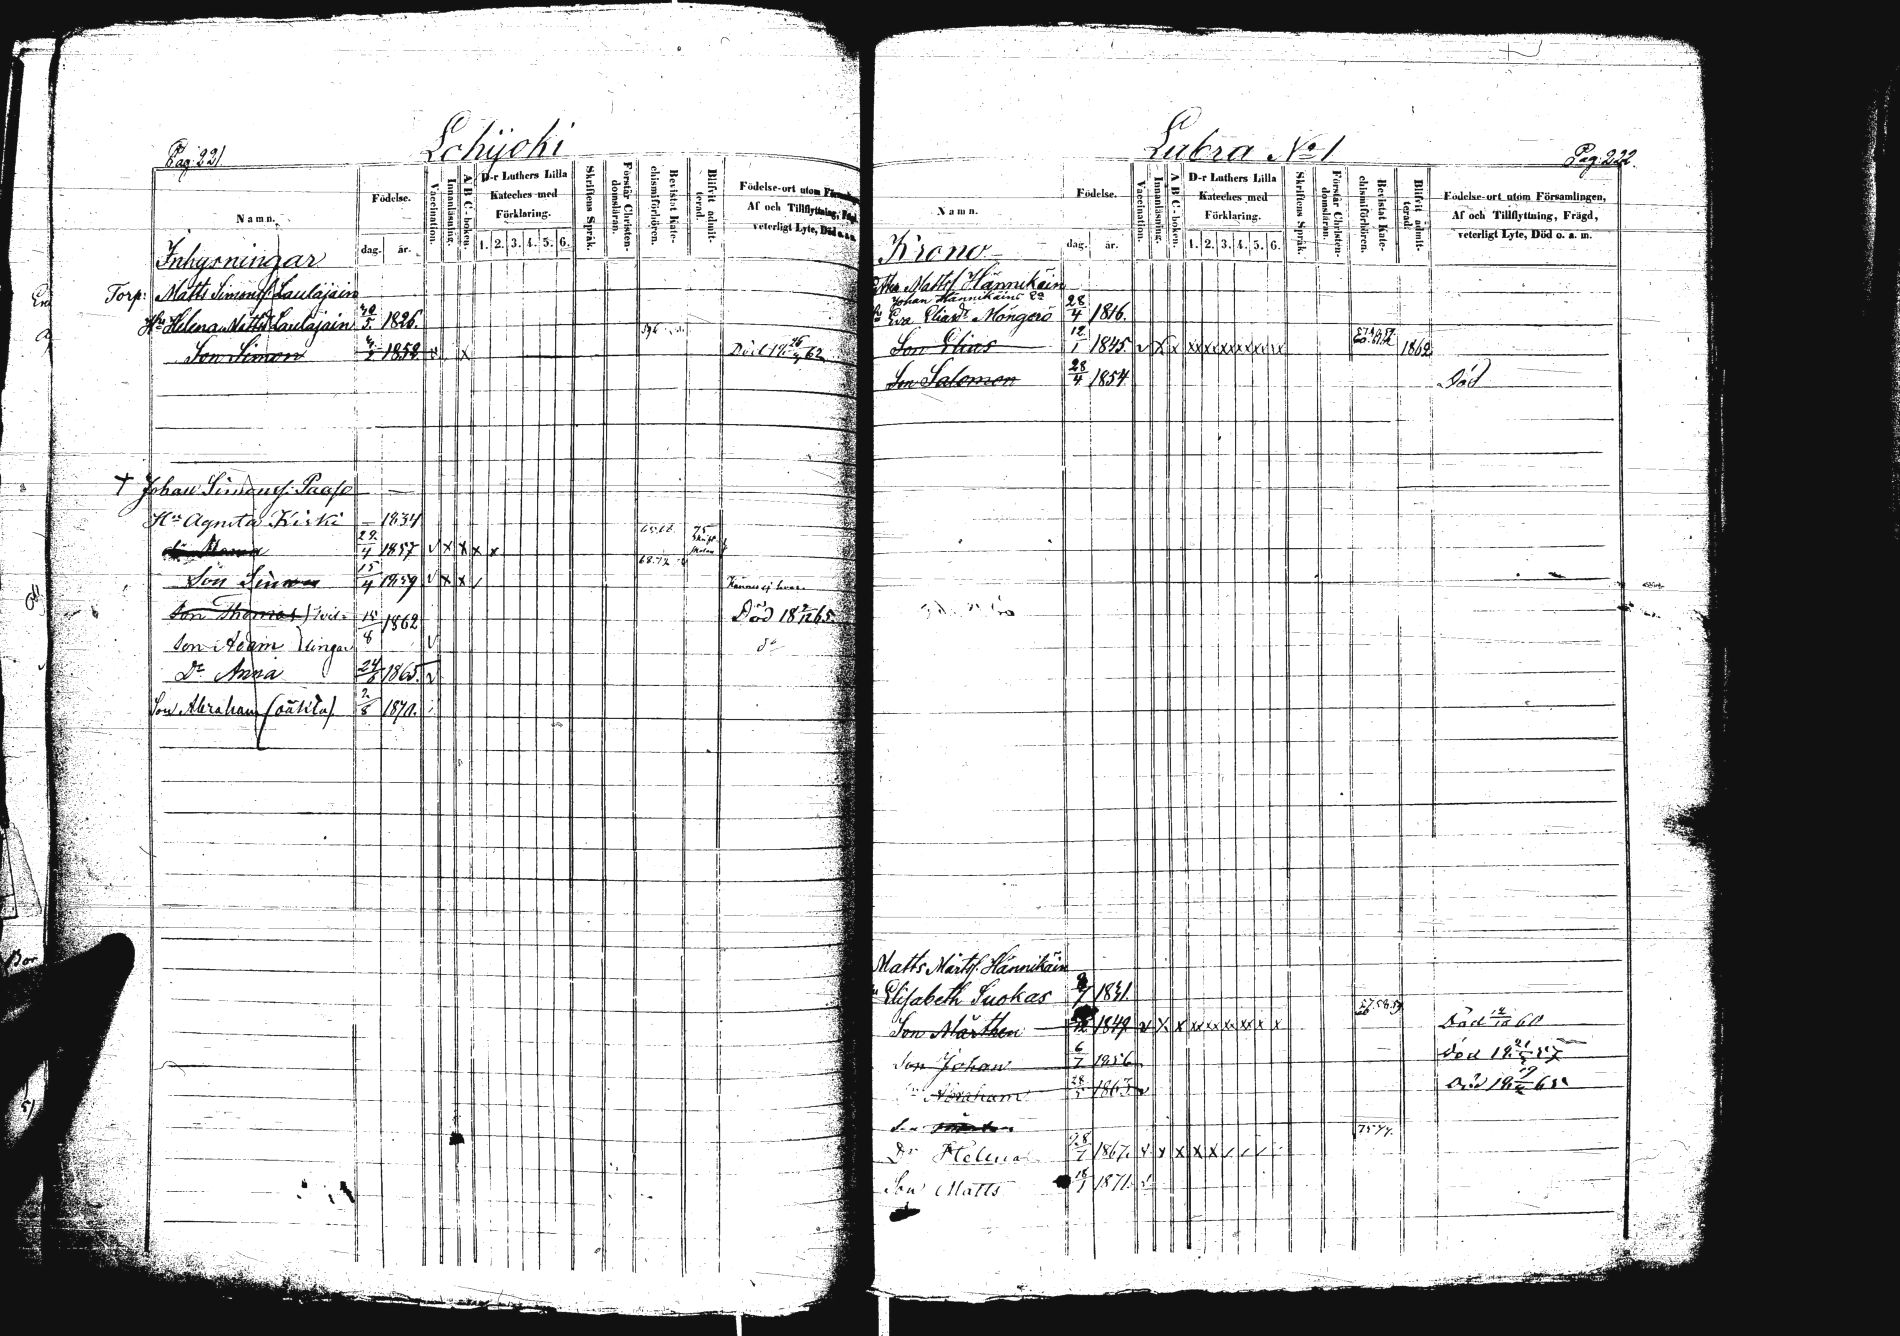 Pag: 221
Lohijoki
Namn.
Födelse.
dag.
år.
Vaccination.
Innanläsning.
A B C-boken.
D-r Luthers Lilla
Kateches med
Förklaring.
1. 2. 3. 4. 5. 6.
Skriftens Språk.
Förstår Christendomsläran.
Bevistat Katechismiförhören.
Blifvit admitterad.
Födelse-ort utom Församling
Af och Tillflyttning, Frägd,
veterligt Lyte, Död o. a. m.
Inhysningar
Torp: Matts Simonss. Laulajain
Hu Helena Mattsd. Laulajain 5. 1826.
Son Simon 1852 v x Död 18 26/4 62
† Johan Simonss. Paaso
Hu Agneta Kiski — 1834
29/4 1857 v x x x x 75
Son Simon 15/4 1859 v x x /
Son Thomas } tvil= 15/8 1862 Död 18 65
Son Adam } lingar v do
Dr Anna 24/6 1865. v
Son Abraham (oäkta) 2/8 1870.
Pag: 222.
Lubra No 1
Namn.
Födelse.
dag.
år.
Vaccination.
Innanläsning.
A B C-boken.
D-r Luthers Lilla
Kateches med
Förklaring.
1. 2. 3. 4. 5. 6.
Skriftens Språk.
Förstår Christendomsläran.
Bevistat Katechismiförhören.
Blifvit admitterad.
Födelse-ort utom Församlingen,
Af och Tillflyttning, Frägd,
veterligt Lyte, Död o. a. m.
Krono
Mattss. Hännikäin
Johan Hännikäins
Eva Eliasdr Möngerö 28/4 1816.
Son Elias 12/1 1845. v x x xxxxxxxxxx 1862
Son Salomon 28/4 1854 Död
Matts Mårtss. Hännikäin
Elisabeth Suokas 1831.
Son Mårthen 1849 v x x xxxxxxx x x 57.58.59. Död 12/10 60
Son Johan 6/7 1856 Död 18 57
Abraham 28/5 1863 v Död 18 65
Dr Helena 28/7 1867. v v x x x / / / 75 77.
Son Matts 18/1 1871.